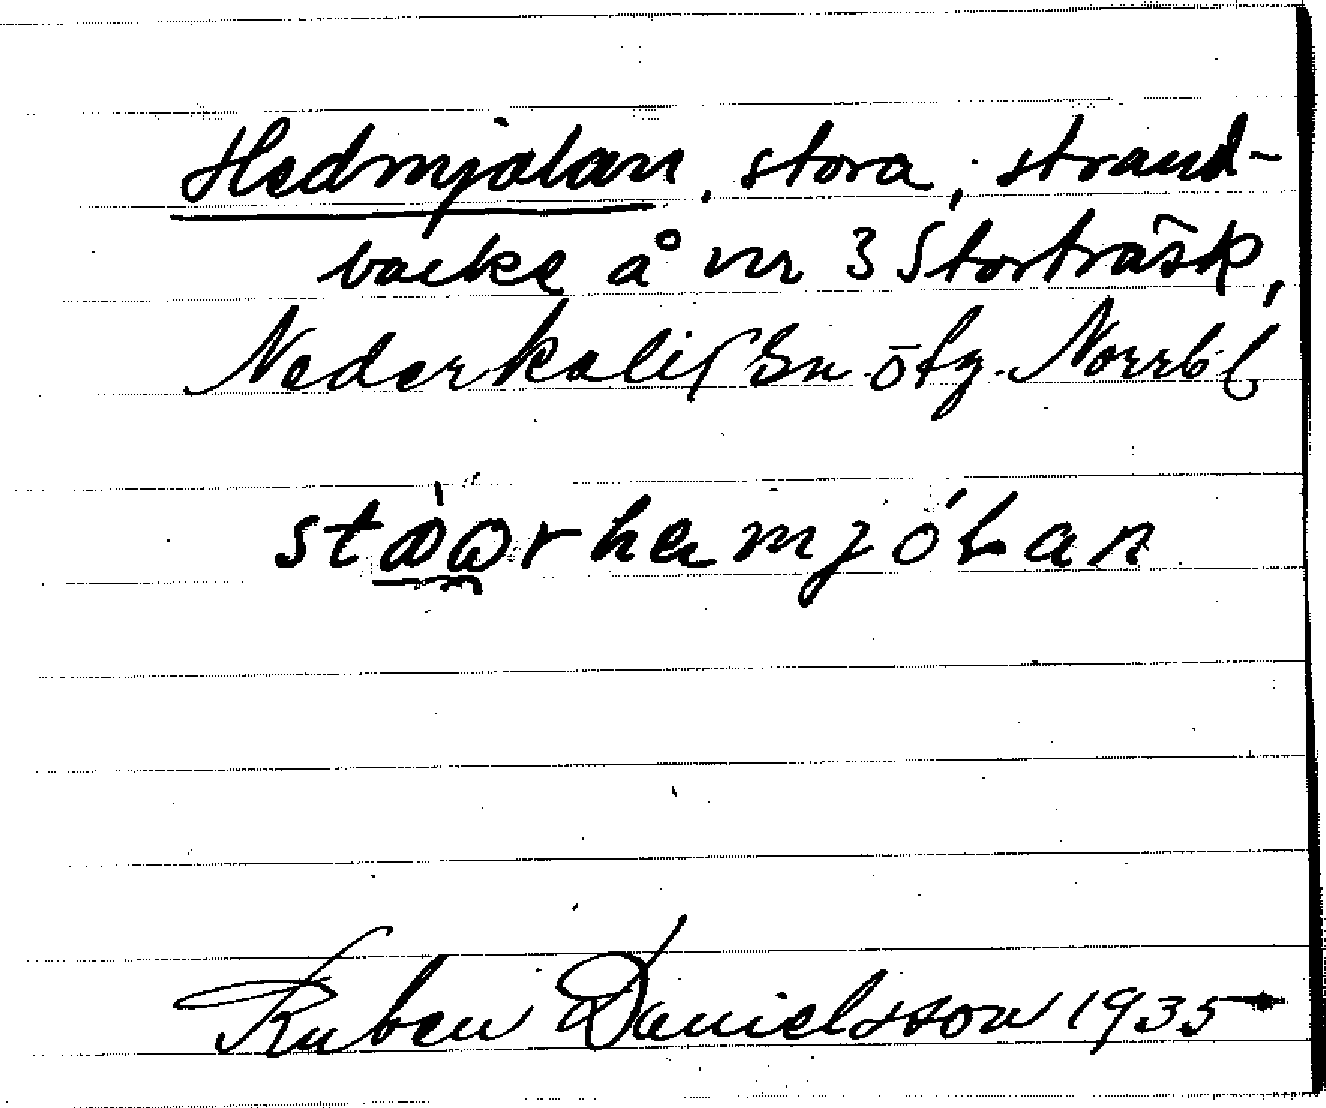 Hedmjölan, stora, strand-
backe å nr 3 Storträsk,
Nederkalix sn ötg. Norrb. l
stò̱o̯rhemjólan
Ruben Danielsson 1935